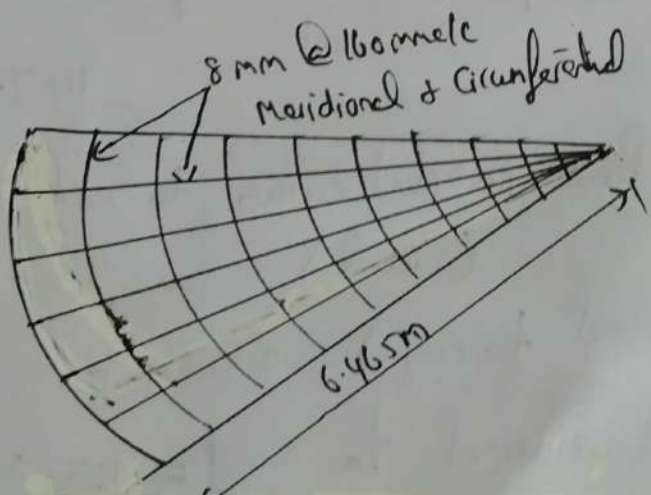 8 mm @ 160 mm c/c
Meridional & Circumferential
6.465m